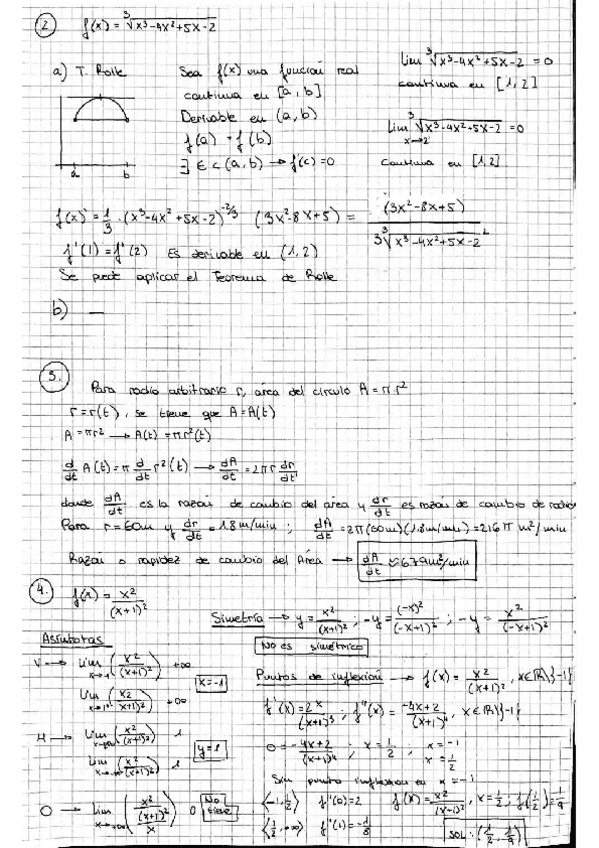 2. f(x) = ∛(x³-4x²+5x-2)
a) T. Rolle
Sea f(x) una función real
continua en [a, b]
Derivable en (a, b)
f(a) = f(b)
∃ ∈ c (a, b) → f(c) = 0
a b
Lim ∛(x³-4x²+5x-2) = 0
continua en [1, 2]
Lim x→2 ∛(x³-4x²+5x-2) = 0
Continua en [1, 2]
f(x)' = 1/3 · (x³-4x²+5x-2)^(-2/3) (3x²-8x+5) = (3x²-8x+5) / 3∛(x³-4x²+5x-2)²
f'(1) = f'(2) Es derivable en (1, 2)
Se puede aplicar el Teorema de Rolle
b) —
3. Para radio arbitrario r, área del círculo A = πr²
r = r(t), se tiene que A = A(t)
A = πr² → A(t) = πr²(t)
d/dt A(t) = π d/dt r²(t) → dA/dt = 2πr dr/dt
donde dA/dt es la razón de cambio del área y dr/dt es razón de cambio de radio
Para r = 60m y dr/dt = 1.8 m/min ; dA/dt = 2π(60m)(1.8m/min) = 216π m²/min
Razón o rapidez de cambio del Área → dA/dt ≈ 679 m²/min
4. f(x) = x²/(x+1)²
Simetría → y = x²/(x+1)² ; -y = (-x)²/(-x+1)² ; -y = x²/(-x+1)²
No es simétrico
Asíntotas
V → Lim x→-1 (x²/(x+1)²) +∞
Lim (x²/(x+1)²) +∞
x=-1
H → Lim (x²/(x+1)²) 1
Lim (x²/(x+1)²) 1
y=1
O → Lim x→+∞ ((x²/(x+1)²)/x) 0 No tiene
Puntos de inflexión → f(x) = x²/(x+1)², x∈ℝ\{-1}
f'(x) = 2x/(x+1)³ ; f''(x) = -4x+2/(x+1)⁴, x∈ℝ\{-1}
0 = -4x+2/(x+1)⁴ ; x = 1/2 ; x = -1
x = 1/2
Sin punto inflexión en x = -1
⟨-1, 1/2⟩ f''(0) = 2 f(x) = x²/(x+1)², x = 1/2, f(1/2) = 1/9
⟨1/2, +∞⟩ f''(1) = -1/8
SOL: (1/2, 1/9)